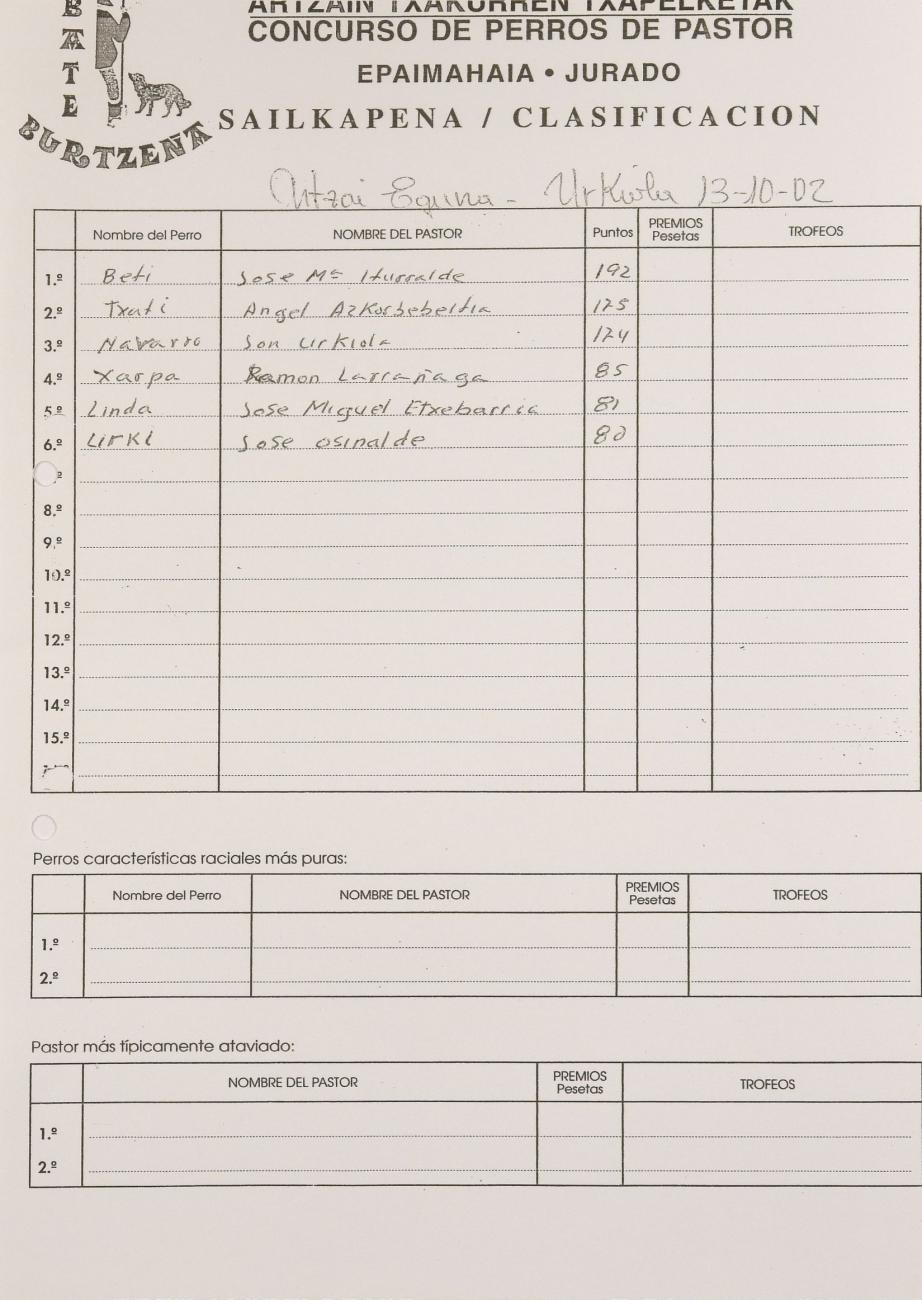 BATE
BURTZEÑA
ARTZAIN TXAKURREN TXAPELKETAK
CONCURSO DE PERROS DE PASTOR
EPAIMAHAIA • JURADO
SAILKAPENA / CLASIFICACION
Artzai Eguna - Urkiola 13-10-02
Nombre del Perro NOMBRE DEL PASTOR Puntos PREMIOS Pesetas TROFEOS
1.º Beti Jose Mª Iturralde 192
2.º Txuti Angel Azkorbebeitia 125
3.º Navarro Jon Urkiola 124
4.º Xarpa Ramon Larrañaga 85
5.º Linda Jose Miguel Etxebarria 81
6.º Urki Jose Osinalde 80
º
8.º
9.º
10.º
11.º
12.º
13.º
14.º
15.º
Perros características raciales más puras:
Nombre del Perro NOMBRE DEL PASTOR PREMIOS Pesetas TROFEOS
1.º
2.º
Pastor más típicamente ataviado:
NOMBRE DEL PASTOR PREMIOS Pesetas TROFEOS
1.º
2.º